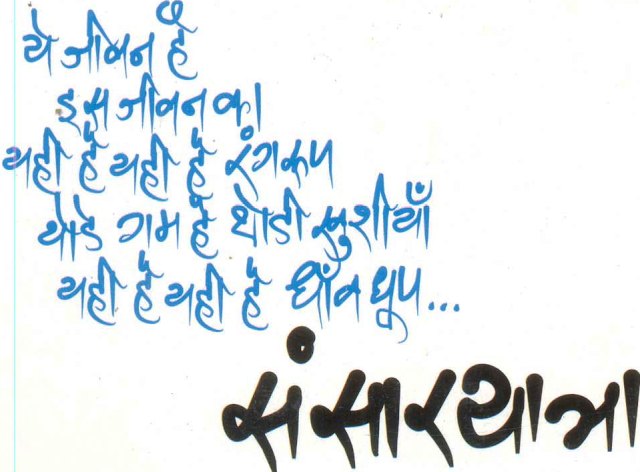 ये जीवन है
इस जीवन का
यही है यही है रंगरूप
थोडे गम है थोडी खुशीयाँ
यही है यही है छाँव धूप...
संसारयात्रा